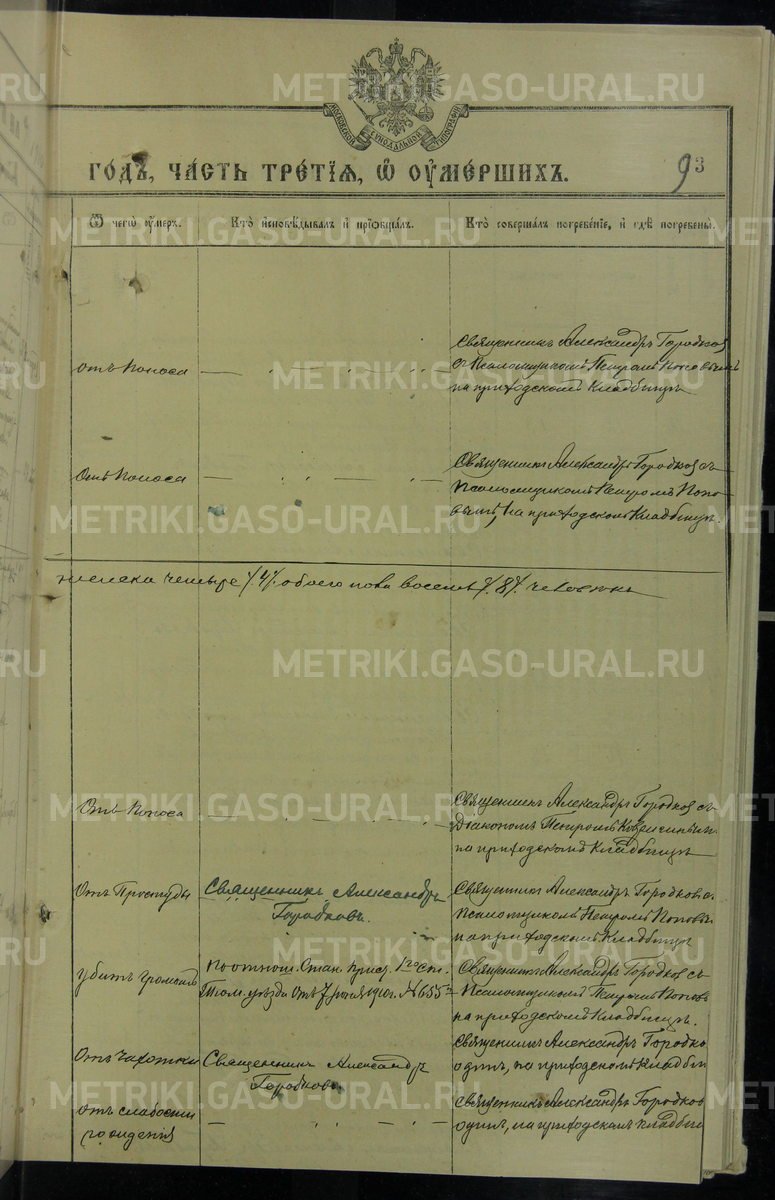 МОСКОВСКОЙ СѴНОДАЛЬНОЙ ТИПОГРАФІИ
ГОДЪ, ЧАСТЬ ТРЕТІЯ, Ѡ ОУМЕРШИХЪ.
93
Ѿ чегѡ оумеръ.
Кто исповѣдывалъ и пріобщалъ.
Кто совершалъ погребеніе, и гдѣ погребены.
отъ поноса
Священникъ Александръ Городков
с Псаломщикомъ Петромъ Поповымъ
на приходскомъ кладбищѣ
Отъ поноса
Священникъ Александръ Городков съ
псаломщикомъ Петромъ Попо-
вымъ, на приходскомъ кладбищѣ.
женска четыре /4/. обоего пола восемь /8/. человѣкъ
Отъ поноса
Священникъ Александръ Городков съ
Діакономъ Петромъ
на приходскомъ кладбищѣ
Отъ Простуды
Священникъ Александръ
Городковъ.
Священникъ Александръ Городков с.
псаломщикомъ Петромъ Поповы
на приходскомъ кладбищѣ
убитъ громомъ
По отнош. Стан. Прист. 1го ст.
уѣзда отъ 7 1910г. № 655
Священникъ Александръ Городков съ
Псаломщикомъ Петромъ Поповъ
на приходскомъ кладбищѣ.
Отъ чахотки
Священникъ Александръ
Городковъ.
Священникъ Александръ Городко
одинъ, на приходскомъ кладби
отъ слабости
рожденія
Священникъ Александръ Городков
одинъ, на приходскомъ кладби
METRIKI.GASO-URAL.RU